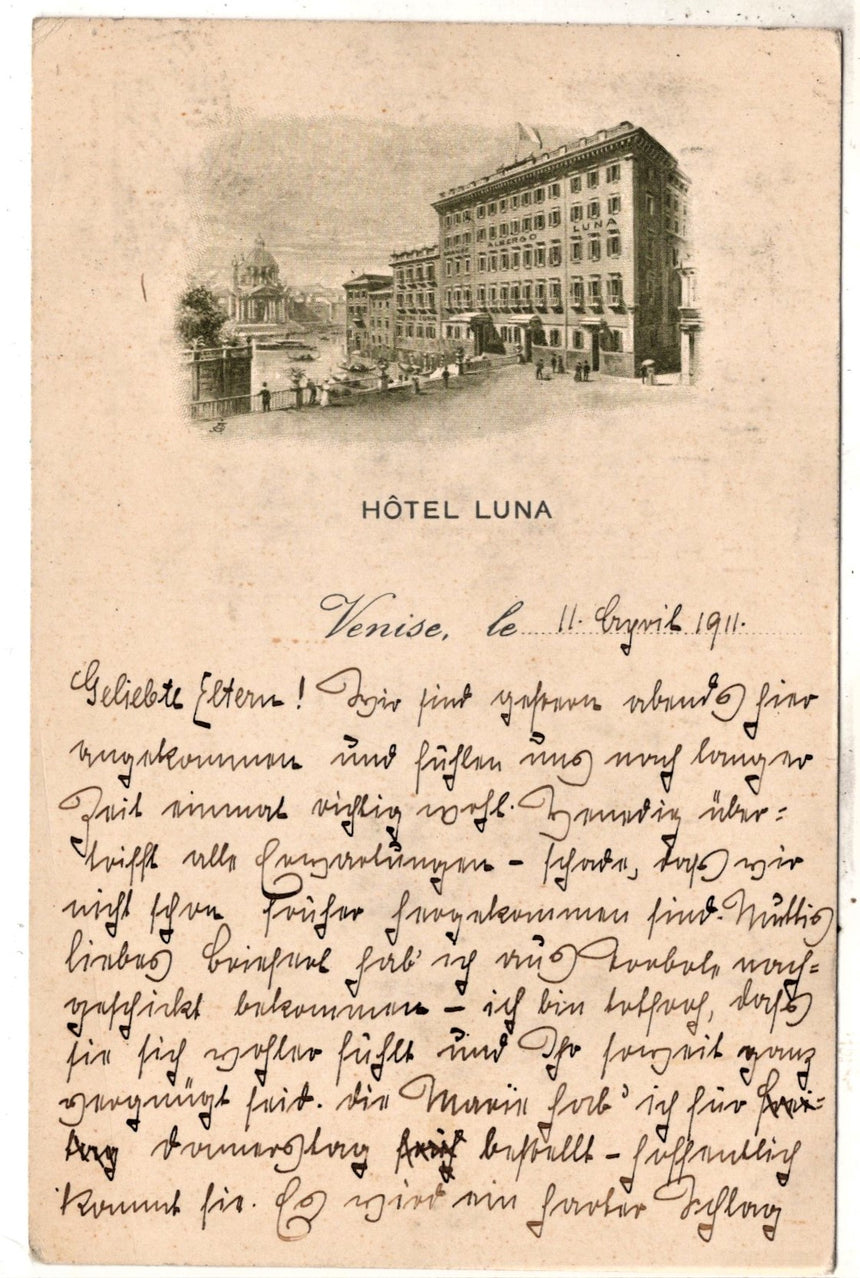 ALBERGO LUNA
HÔTEL LUNA
Venise, le 11. April 1911.
Geliebte Eltern! Wir sind gestern abends hier
angekommen und fühlen uns nach langer
Zeit einmal richtig wohl. Venedig über-
trifft alle Erwartungen – schade, dass wir
nicht schon früher hergekommen sind. Muttis
liebes Brieferl hab' ich aus Torbole nach-
geschickt bekommen – ich bin totfroh, dass
sie sich wohler fühlt und Ihr soweit ganz
vergnügt seid. die Marie hab' ich für Frei-
tag donnerstag früh bestellt – hoffentlich
kommt sie. Es wird ein harter Schlag